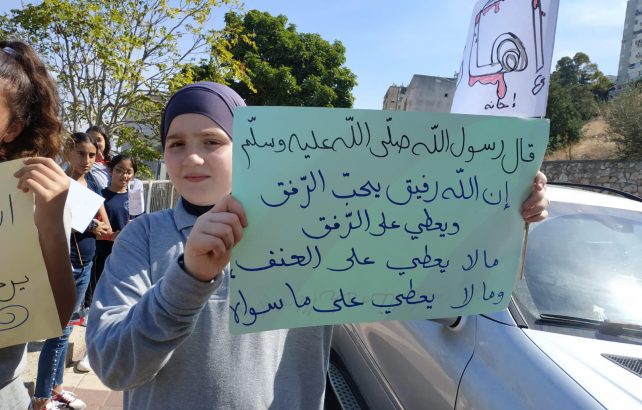 قال رسول الله صلّى الله عليه وسلّم
إن الله رفيق يحبّ الرّفق
ويعطي على الرّفق
مالا يعطي على العنف
ومالا يعطي على ما سواه
إدانة